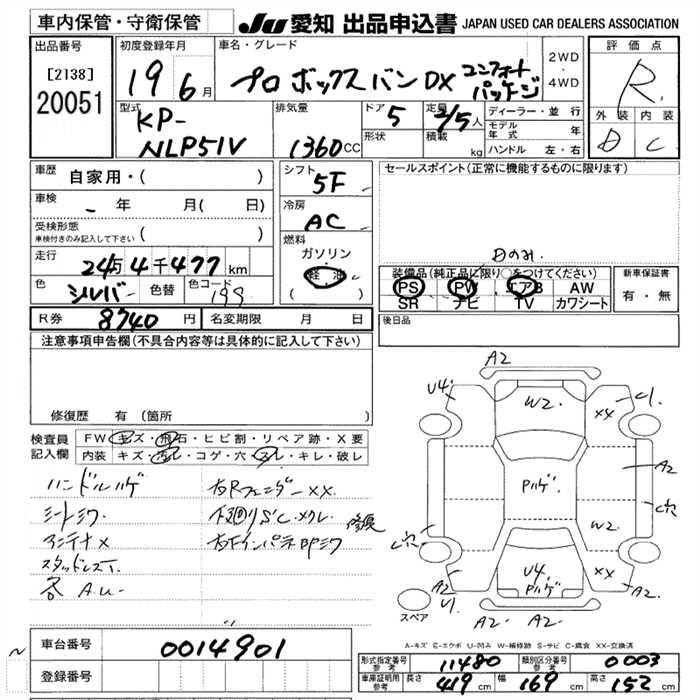 車内保管・守衛保管 JU 愛知 出品申込書 JAPAN USED CAR DEALERS ASSOCIATION
出品番号 初度登録年月 車名・グレード 評価点
[2138] 20051
19 6月 プロボックスバンDX コンフォートパッケージ 2WD・4WD R
型式 排気量 ドア 5 定員 2/5人 ディーラー・並行 外装 内装
KP-NLP51V 1360CC 形状 積載 kg モデル年式 年 D C
ハンドル 左・右
車歴 自家用・( ) シフト 5F セールスポイント(正常に機能するものに限ります)
車検 - 年 月( 日) 冷房 AC
受検形態 車検付きのみ記入して下さい ( ) Dのみ.
走行 24万4千477km 燃料 ガソリン 軽油 ( )
装備品(純正品に限り○をつけてください) 新車保証書
色 シルバー 色替 色コード 199 PS PW エアB AW 有・無
SR ナビ TV カワシート
R券 8740円 名変期限 月 日 後日品
注意事項申告欄(不具合内容等は具体的に記入して下さい)
修復歴 有(箇所 )
検査員記入欄 FW キズ・飛石・ヒビ割・リペア跡・X要
内装 キズ・汚レ・コゲ・穴・スレ・キレ・破レ
ハンドルハゲ 右Rフェンダー XX.
シートシワ 下廻りS'C.メクレ 修復
アンテナX 右Fインパネ部Pシワ
スタッドレスT.
各 A.U.
A2
U4. W2 C1.
XX
Pハゲ. A2
C穴
W2.
C穴
A2 U4. XX
U1. Pハゲ A2
スペア A2 A2
A-キズ E-エクボ U-凹み W-補修跡 S-サビ C-腐食 XX-交換済
車台番号 0014901
登録番号
形式指定番号 参考 11480 類別区分番号 参考 0003
車庫証明用 参考 長さ 419cm 幅 169cm 高さ 152cm